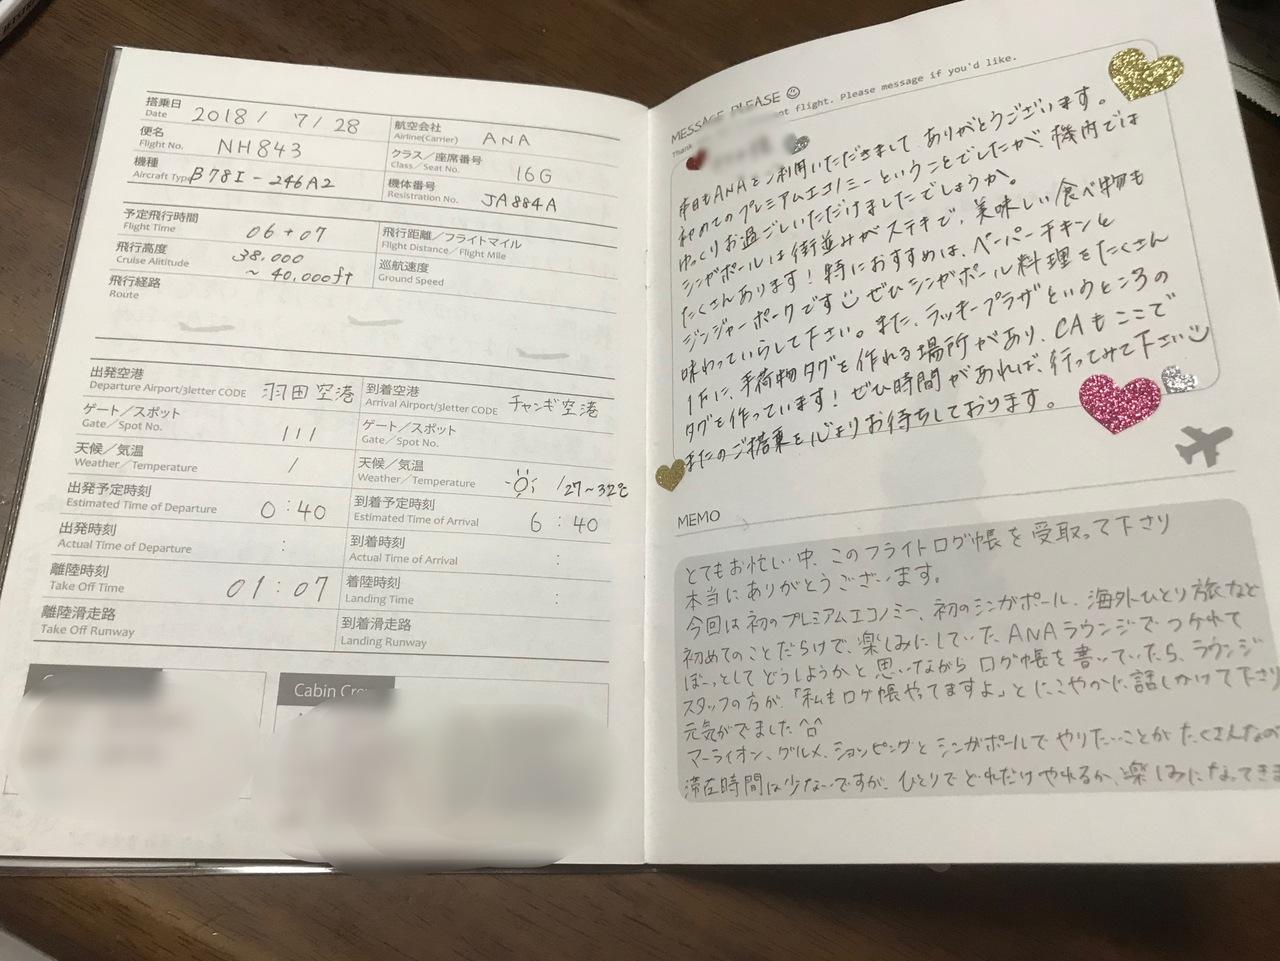 搭乗日
Date
2018/ 7/28
航空会社
Airline(Carrier)
ANA
便名
Flight No.
NH843
クラス／座席番号
Class／Seat No.
16G
機種
Aircraft Type
B78I-246A2
機体番号
Resistration No.
JA884A
予定飛行時間
Flight Time
06+07
飛行距離／フライトマイル
Flight Distance／Flight Mile
飛行高度
Cruise Alititude
38,000
～40,000ft
巡航速度
Ground Speed
飛行経路
Route
出発空港
Departure Airport/3letter CODE
羽田空港
到着空港
Arrival Airport/3letter CODE
チャンギ空港
ゲート／スポット
Gate／Spot No.
111
ゲート／スポット
Gate／Spot No.
天候／気温
Weather／Temperature
/
天候／気温
Weather／Temperature
/27～32℃
出発予定時刻
Estimated Time of Departure
0:40
到着予定時刻
Estimated Time of Arrival
6:40
出発時刻
Actual Time of Departure
:
到着時刻
Actual Time of Arrival
:
離陸時刻
Take Off Time
01:07
着陸時刻
Landing Time
:
離陸滑走路
Take Off Runway
到着滑走路
Landing Runway
Cabin Cre
MESSAGE PLEASE
Thank
nt flight. Please message if you'd like.
本日もANAをご利用いただきまして ありがとうございます。
初めてのプレミアムエコノミーということでしたが、機内では
ゆっくりお過ごしいただけましたでしょうか。
シンガポールは街並みがステキで、美味しい食べ物も
たくさんあります！特におすすめは、ペーパーチキンと
ジンジャーポークです ぜひシンガポール料理をたくさん
味わっていらして下さい。また、ラッキープラザというところの
1Fに、手荷物タグを作れる場所があり、CAもここで
タグを作っています！ぜひ時間があれば、行ってみて下さい
またのご搭乗を心よりお待ちしております。
MEMO
とてもお忙しい中、このフライトログ帳を受取って下さり
本当にありがとうございます。
今回は初のプレミアムエコノミー、初のシンガポール、海外ひとり旅など
初めてのことだらけで、楽しみにしていたANAラウンジでつかれて
ぼーっとしてどうしようかと思いながらログ帳を書いていたら、ラウンジ
スタッフの方が、「私もログ帳やってますよ」とにこやかに話しかけて下さり
元気がでました^^
マーライオン、グルメ、ショッピングとシンガポールでやりたいことがたくさんなの
滞在時間は少ないですが、ひとりでどれだけやれるか、楽しみになってきま